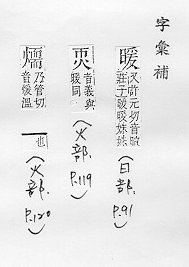 字彙補
暖
又許元切音暄
莊子暖暖姝姝
(日部.P.91)
音義與
暖同
(火部.P.119)
燸
乃管切
音煖溫
也
(火部.P.120)